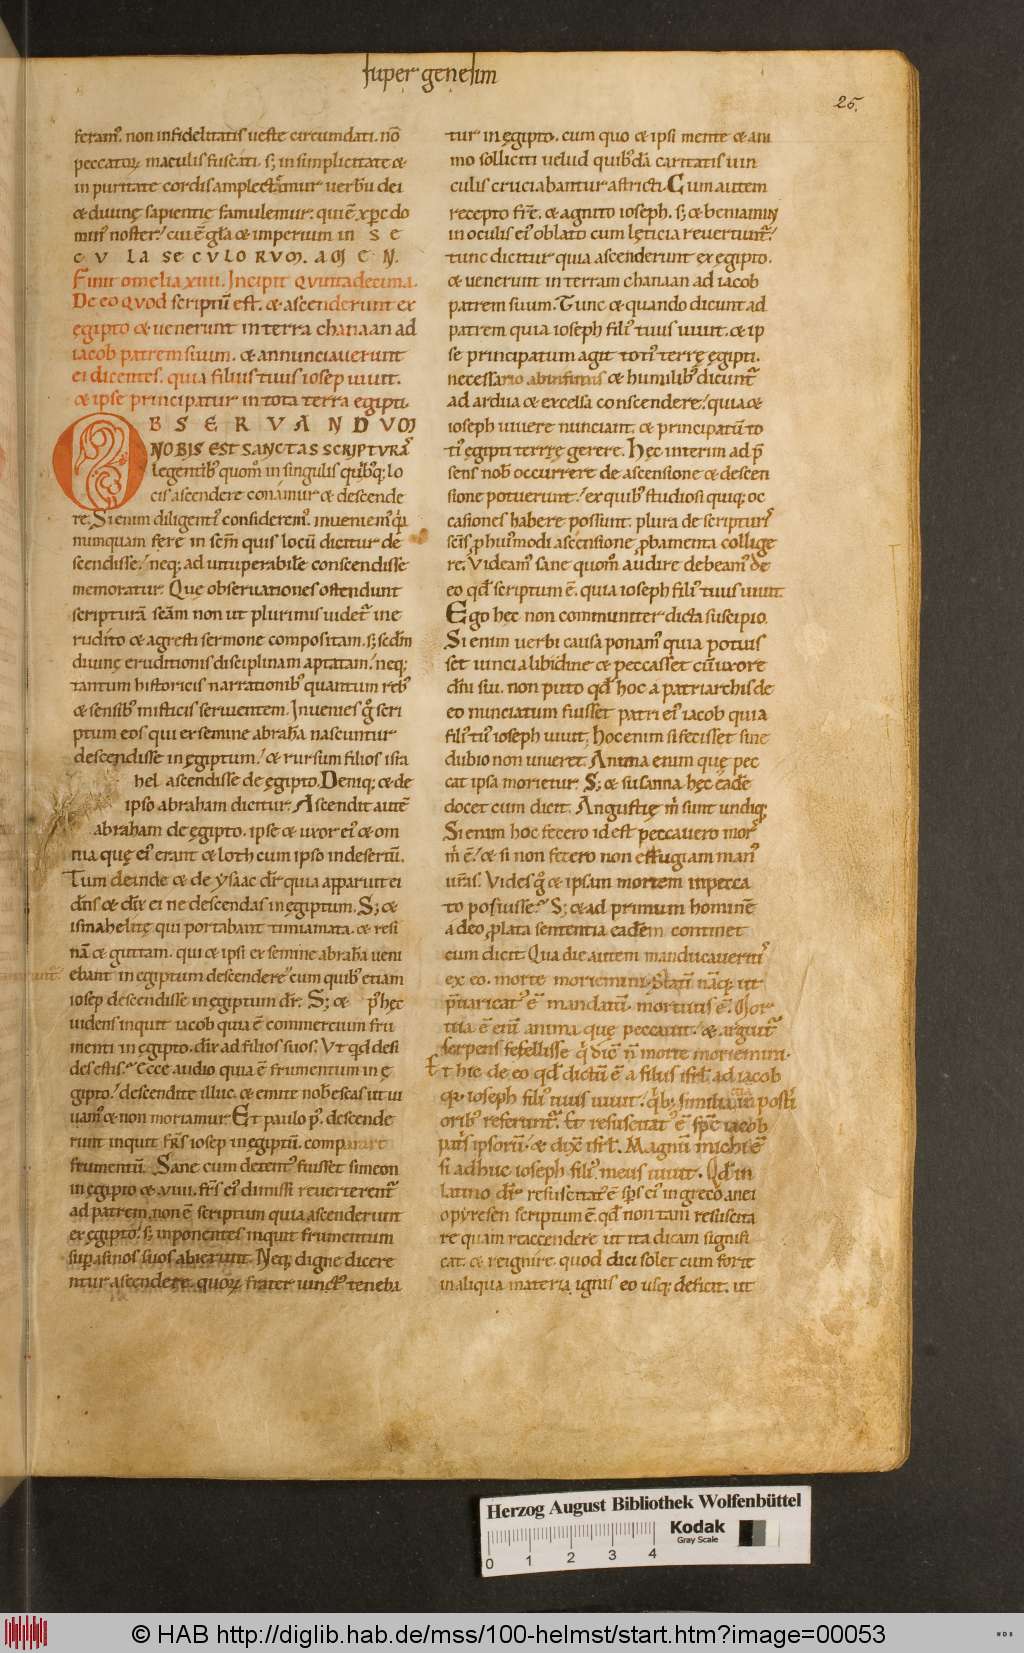 super genesim
25.
feram᷒. non infidelitatis ueste circumdati. nō
peccatoꝝ maculis fuscati. s; in simplicitate &
in puritate cordis amplectamur uerbū dei
& diuinę sapientię famulemur. qui ē xp̄c do
min᷒ noster. cui ē gl̄a & imperium in SE
CULA SECULORUM. AMEN.
Finit omelia xiiii. Incipit Quinta decima.
De eo quod scriptū est. & ascenderunt ex
egipto & uenerunt in terra chanaan ad
iacob patrem suum. & annunciauerunt
ei dicentes. quia filius tuus iosep uiuit.
& ipse principatur in tota terra egipti.
OBSERUANDUM
NOBIS EST SANCTAS SCRIPTURAS
legentib᷒ quom̄ in singulis quib᷒q; lo
cis ascendere conamur & descende
re. Si enim diligent᷒ considerem᷒. inueniem᷒ q̄
numquam fere in scm̄ quis locū dicitur de
scendisse. neq; ad uituperabile conscendisse
memoratur. Que obseruationes ostendunt
scripturā scām non ut plurimis uidet᷒ ine
rudito & agresti sermone compositam. s; scdm̄
diuinę eruditionis disciplinam aptatam. neq;
tantum historicis narrationib᷒ quantum reb᷒
& sensib᷒ misticis seruientem. Inuenies g̊ scri
ptum eos qui ex semine abrahā nascuntur
descendisse in ęgiptum. & rursum filios isra
hel ascendisse de ęgipto. Deniq; & de
ipso abraham dicitur. Ascendit autē
abraham de ęgipto. ipse & uxor ei᷒ & om
nia quę ei᷒ erant & loth cum ipso in desertū.
Tum deinde & de ysaac dr̄ quia apparuit ei
dn̄s & dix̄ ei ne descendas in ęgiptum. S; &
ismahelitę qui portabant timiamata. & resi
nā & guttam. qui & ipsi ex semine abrahā ueni
ebant in egiptum descendere cum quib᷒ etiam
iosep descendisse in egiptum dr̄. S; & p᷒ hęc
uidens inquit iacob quia ē commercium fru
menti in ęgipto. dix̄ ad filios suos. Ut qd̄ desi
des estis. Ecce audio quia ē frumentum in ę
gipto. descendite illuc. & emite nob̄ escas ut ui
uam᷒ & non moriamur. Et paulo p᷒. descende
runt inquit frs̄ iosep in egiptū. comparare
frumentū. Sane cum detent᷒ fuisset simeon
in ęgipto & .viiii. frs̄ ei᷒ dimissi reuerterent᷒
ad patrem. non ē scriptum quia ascenderunt
ex ęgipto. s; inponentes inquit frumentum
sup asinos suos abierunt. Neq; digne dicere
ntur ascendere. quoꝝ frater uinct᷒ teneba
tur in ęgipto. cum quo & ipsi mente & ani
mo solliciti uelud quib᷒dā caritatis uin
culis cruciabantur astricti. Cum autem
recepto fr̄e. & agnito ioseph. s; & beniamin
in oculis ei᷒ oblato cum lęticia reuertunt᷒.
tunc dicitur quia ascenderunt ex ęgipto.
& uenerunt in terram chanaan ad iacob
patrem suum. Tunc & quando dicunt ad
patrem quia ioseph fili᷒ tuus uiuit. & ip
se principatum agit toti᷒ terrę ęgipti.
necessario ab infimis & humilib᷒ dicunt᷒
ad ardua & excelsa conscendere. quia &
ioseph uiuere nunciant. & principatū to
ti᷒ ęgipti terrę gerere. Hęc interim ad p̄
sens nob̄ occurrere de ascensione & descen
sione potuerunt. ex quib᷒ studiosi quiq; oc
casiones habere possunt. plura de scripturis
scīs ꝓ hui᷒modi ascensione ꝓbamenta collige
re. Videam᷒ sane quom̄ audire debeam᷒ de
eo qd̄ scriptum ē. quia ioseph fili᷒ tuus uiuit
Ego hęc non communiter dicta suscipio.
Si enim uerbi causa ponam᷒ quia potuis
set uinci a libidine & peccasset cū uxore
dn̄i sui. non puto qd̄ hoc a patriarchis de
eo nunciatum fuisset patri ei᷒ iacob quia
fili᷒ tu᷒ ioseph uiuit. Hoc enim si fecisset sine
dubio non uiueret. Anima enim quę pec
cat ipsa morietur. S; & susanna hęc eade
docet cum dicit. Angustię m̄ sunt undiq;
Si enim hoc fecero id est peccauero mors
m̄ ē. & si non fecero non effugiam man᷒
uras. Vides g̊ & ipsam mortem in pecca
to posuisse. S; & ad primum hominē
adeo ꝓlata sententia eadem continet
cum dicit Qua die autem manducaueritis
ex eo. morte moriemini. Statī nāq; ut
p̄uaricat᷒ ē mandatū. mortuus ē. Mor
tua ē enī anima quę peccauit. & arguit᷒
serpens fefellisse q̇ dix̄ n̄ morte moriemini.
Et hic de eo qd̄ dictū ē a filiis isrl̄ ad iacob
qr̄ ioseph fili᷒ tuus uiuit. q̄b; similia in posti
orib᷒ referunt᷒. Et resuscitat᷒ ē sp̄c iacob
patris ipsorū. & dix̄ isrl̄. Magnū michi ē
si adhuc ioseph fili᷒ meus uiuit. Qd̄ in
latino dr̄ resuscitat᷒ ē sp̄s ei᷒ in greco anei
opyresen scriptum ē. qd̄ non tam resuscita
re quam reaccendere ut ita dicam signifi
cat. & reignire. quod dici solet cum forte
in aliqua materia ignis eo usq; deficit. ut
Herzog August Bibliothek Wolfenbüttel
Kodak
Gray Scale
0 1 2 3 4
© HAB http://diglib.hab.de/mss/100-helmst/start.htm?image=00053
HAB